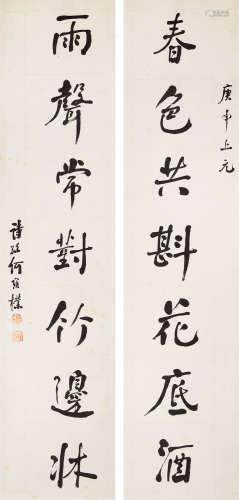 春色共斟花底酒
庚午上元
雨聲常對竹邊牀
詩孫何維樸